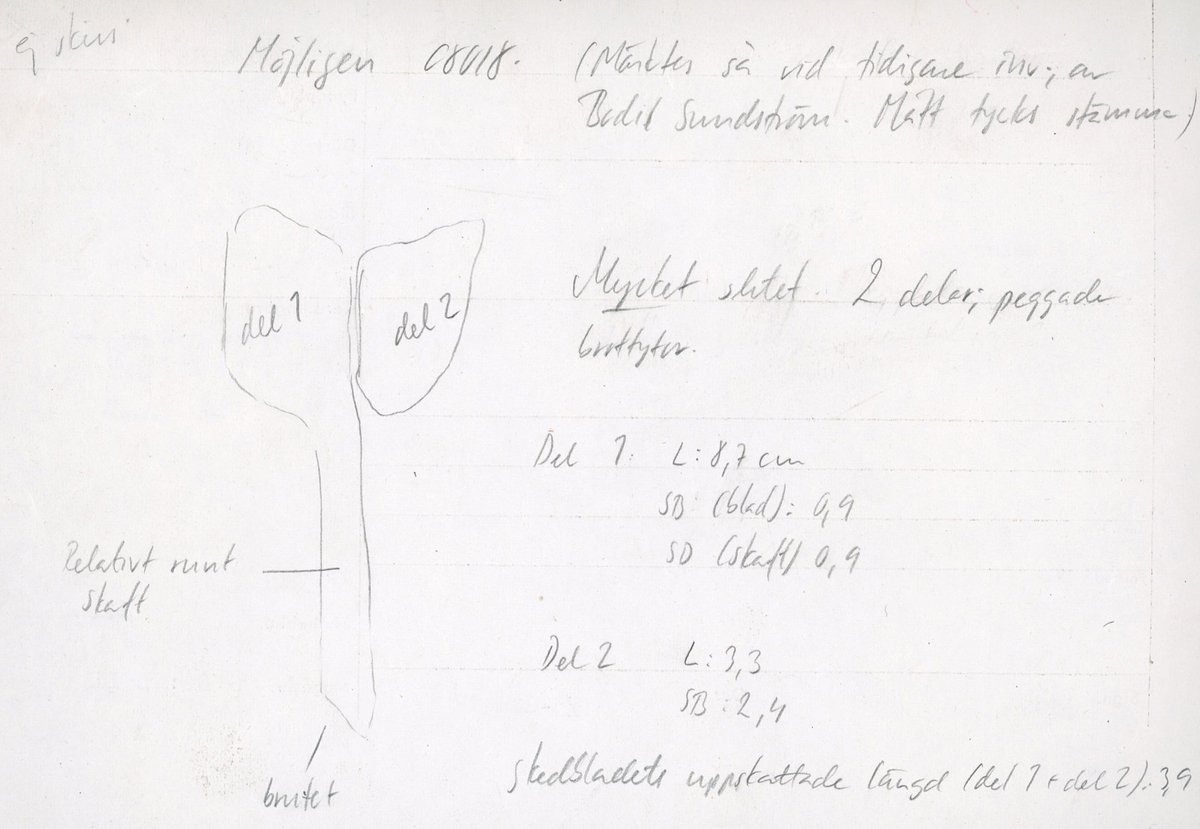 ej skiss
Möjligen 08018. (Märktes så vid tidigare inv; av
Bodil Sundström. Mått tycks stämma)
del 1
del 2
Mycket slitet. 2 delar; peggade
brottytor.
Del 1: L: 8,7 cm
SB (blad): 0,9
SD (skaft) 0,9
Relativt runt
skaft
Del 2 L: 3,3
SB: 2,4
brutet
skedbladets uppskattade längd (del 1 + del 2): 3,9